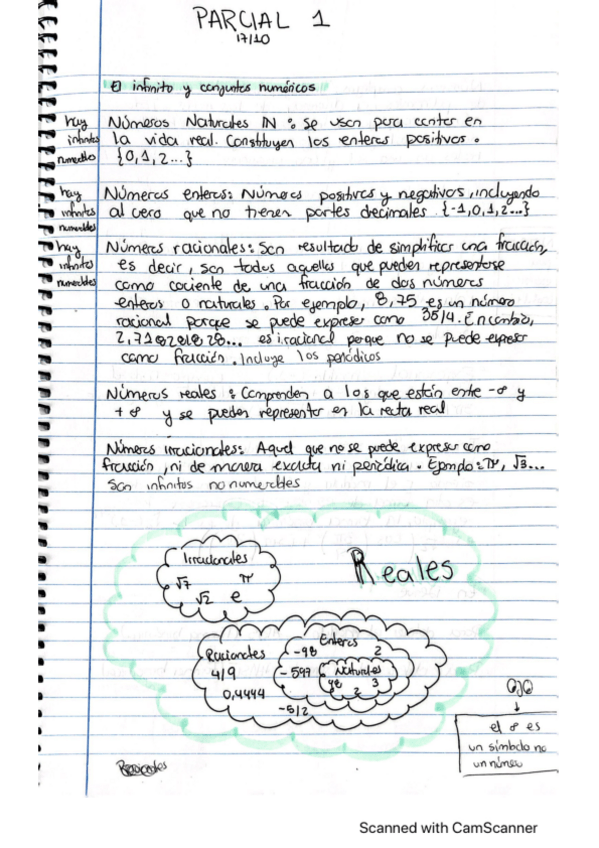 PARCIAL 1
17/10
El infinito y conjuntos numéricos
hay infinitos numerables
Números Naturales IN : se usan para contar en
la vida real. Constituyen los enteros positivos.
{0,1,2...}
hay infinitos numerables
Números enteros: Números positivos y negativos, incluyendo
al cero que no tienen partes decimales. {-1,0,1,2...}
hay infinitos numerables
Números racionales: Son resultado de simplificar una fracción,
es decir, son todos aquellos que pueden representarse
como cociente de una fracción de dos números
enteros o naturales. Por ejemplo, 8,75 es un número
racional porque se puede expresar como 35/4. En cambio,
2,718281828... es irracional porque no se puede expresar
como fracción. Incluye los periódicos
Números reales : Comprenden a los que están entre -∞ y
+∞ y se pueden representar en la recta real
Números irracionales: Aquel que no se puede expresar como
fracción, ni de manera exacta ni periódica. Ejemplo: π, √3...
Son infinitos no numerables
Irracionales
√7 π
√2 e
Reales
Enteros
-98 2
Racionales
4/9
-597
Naturales
98 3
2
0,4444
-5/2
OJO
↓
el ∞ es
un símbolo no
un número
Scanned with CamScanner